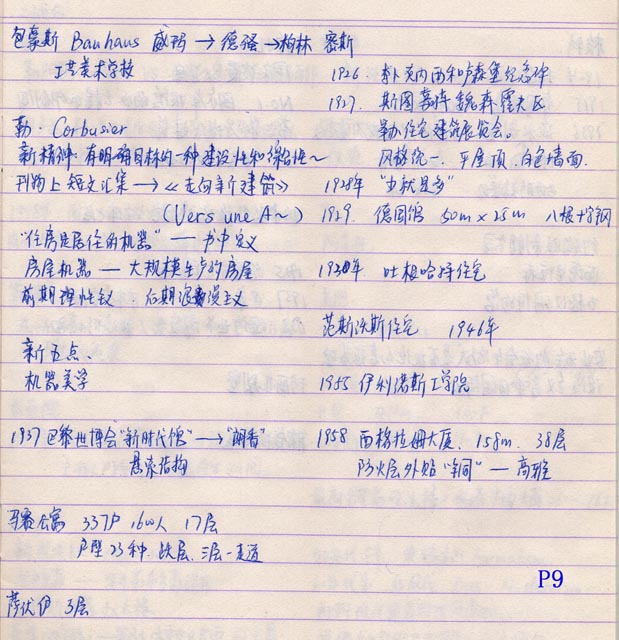 包豪斯 Bauhaus 威玛→德骚→柏林
工艺美术学校
勒·Corbusier
新精神·有明确目标的一种建设性和综合性~
刊物上短文汇集→《走向新建筑》
(Vers une A~)
"住房是居住的机器"——书中定义
房屋机器—大规模生产的房屋
前期理性议 后期浪漫主义
新五点、
机器美学
1937 巴黎世博会"新时代馆"→"朗香"
悬索结构
马赛公寓 337户 1600人 17层
户型23种. 跃层. 三层一走道
萨伏伊 3层
密斯
1926. 李卜克内西和卢森堡纪念碑
1927. 斯图加特 魏森霍夫区
举办住宅建筑展览会。
风格统一. 平屋顶. 白色墙面.
1928年 "少就是多"
1929. 德国馆 50m×25m 八根十字钢
1930年 吐根哈特住宅
范斯沃斯住宅 1946年
1955 伊利诺斯工学院
1958 西格拉姆大厦. 158m. 38层
防火层外贴"铜"—高雅
P9